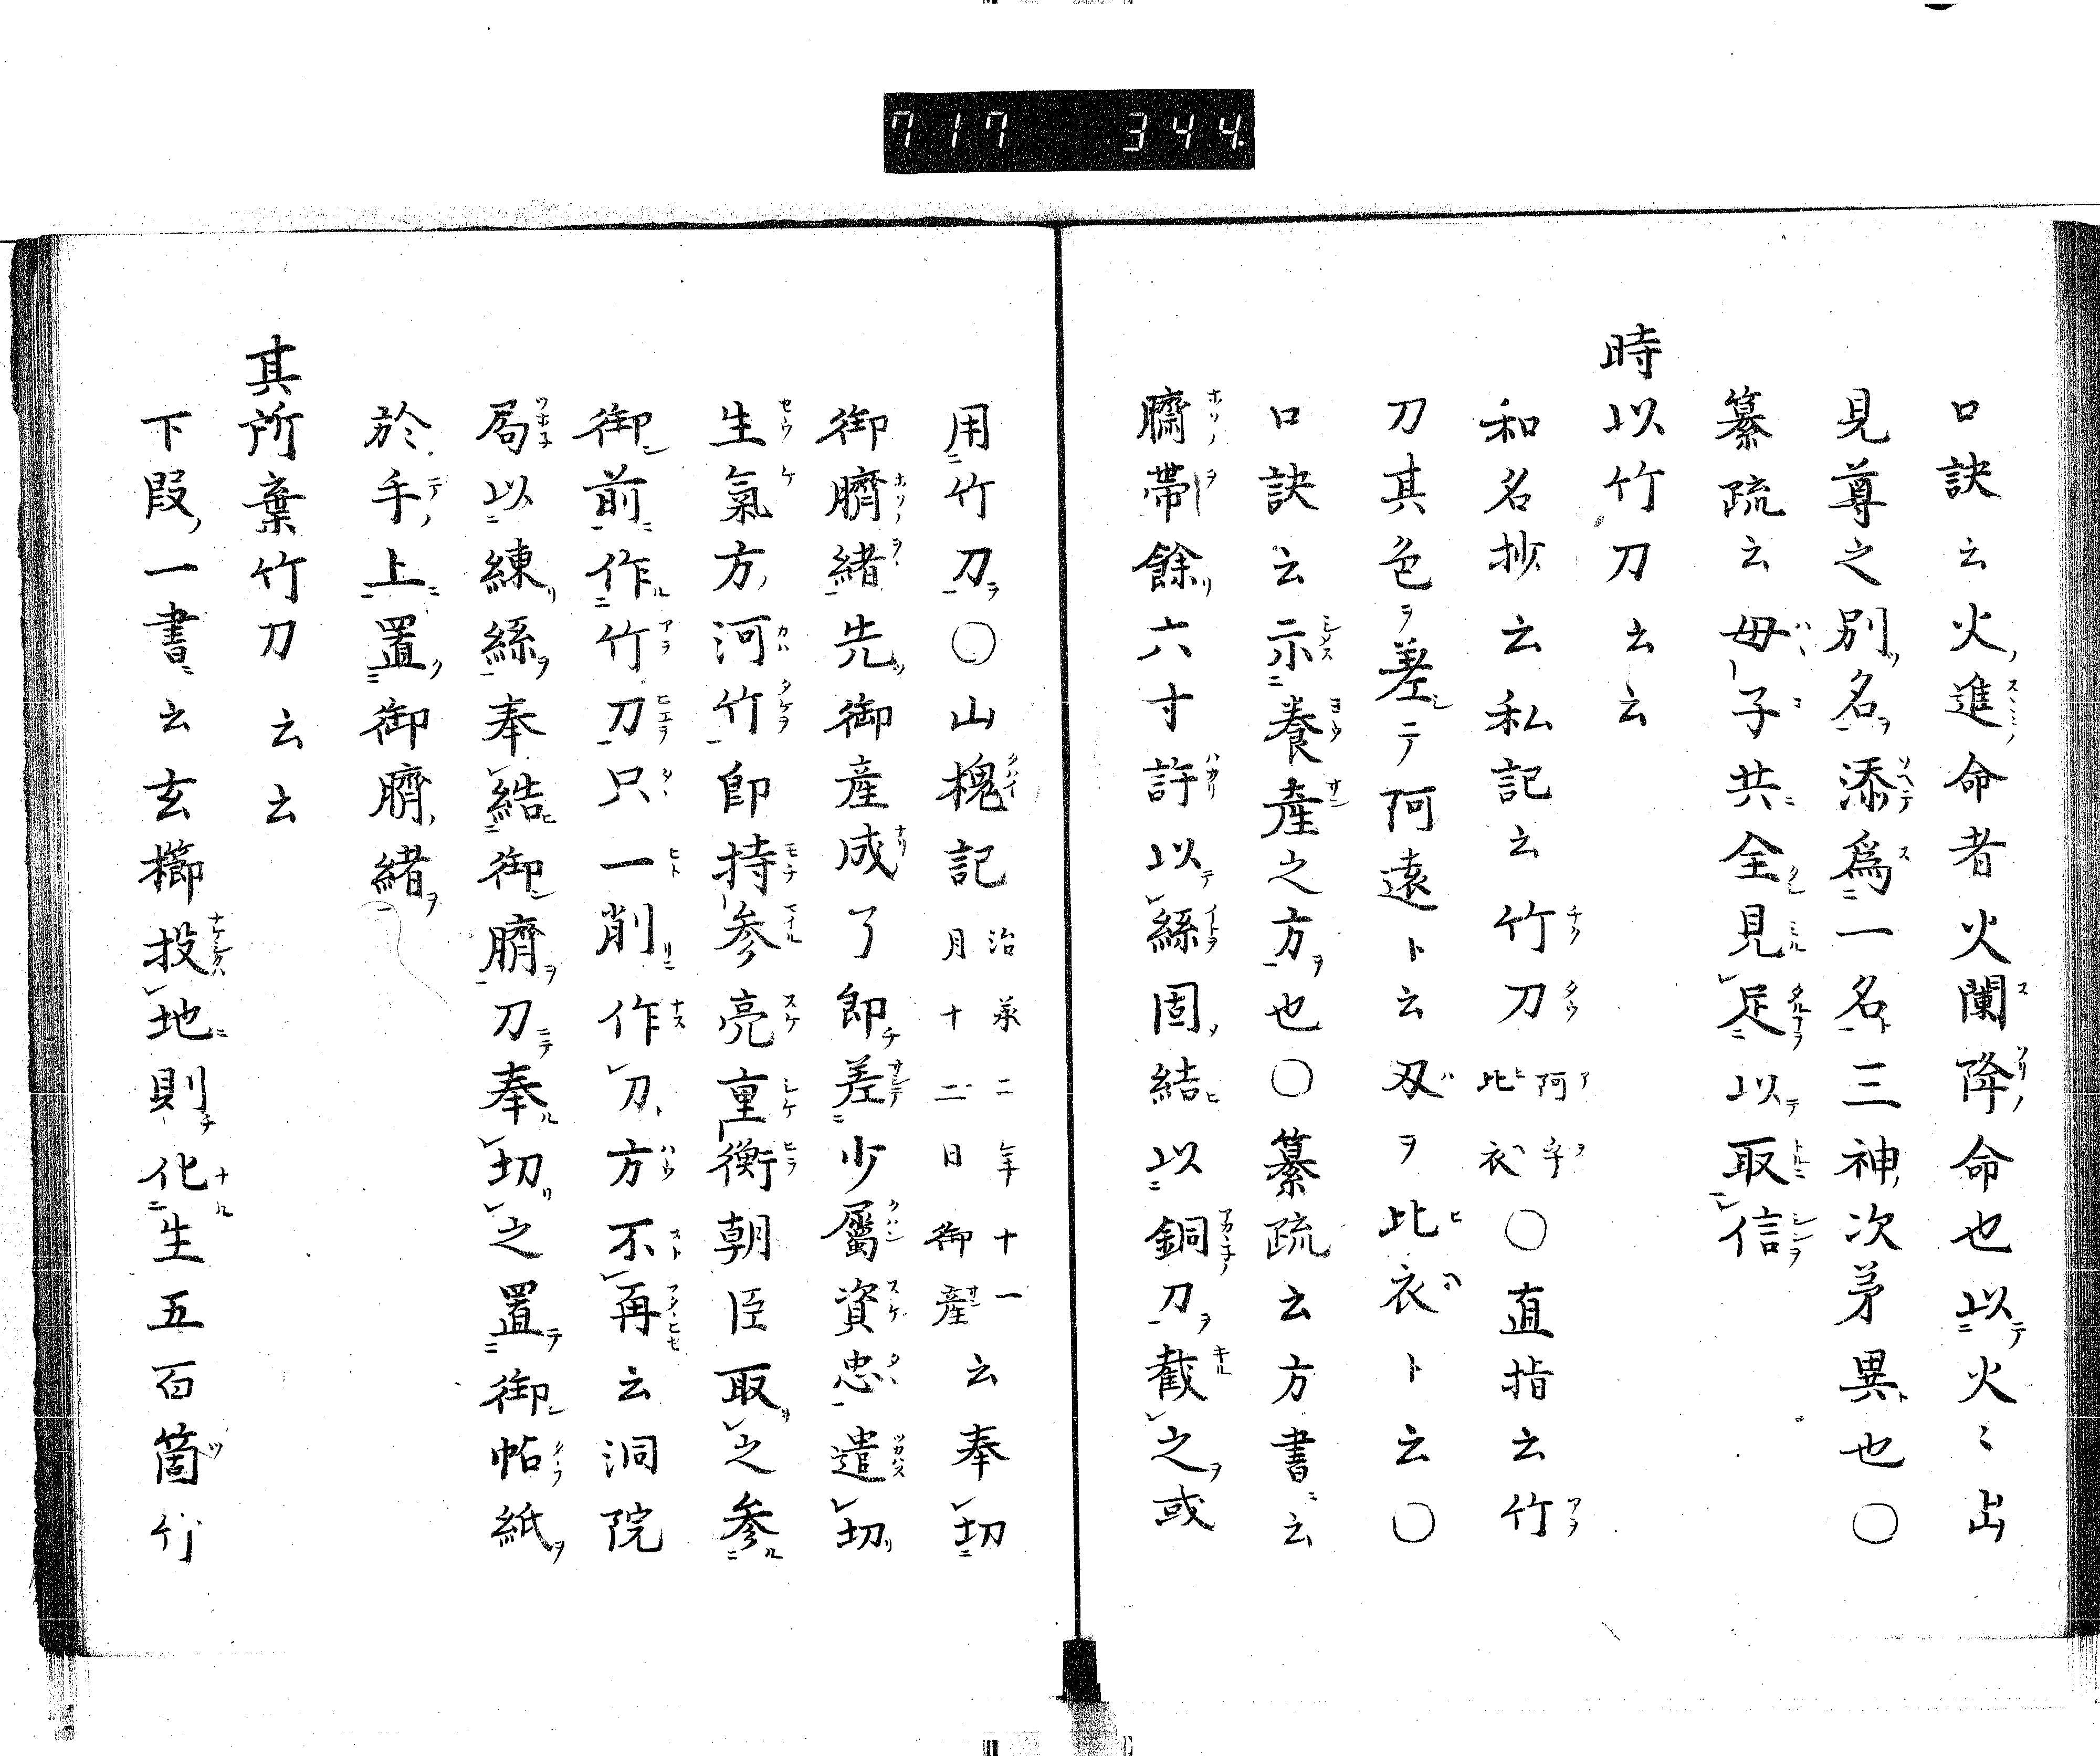 717 344
口訣云火進命者火闌降命也以火〻出
見尊之別名添爲一名三神次苐異也〇
纂疏云毋子共全見足以取信
時以竹刀云云
和名抄云私記云竹刀阿乎比衣〇直指云竹
刀其色ヲ差ニテ阿遠ト云刄ヲ比衣ト云〇
口訣云示養產之方也〇纂疏云方書云
臍帶餘六寸許以絲固結以銅刀截之或
用竹刀〇山槐記治承二年十一月十二日御產云奉切
御臍緒先御產成了即差少屬資忠遣切
生氣方河竹即持参亮重衡朝臣取之参
御前作竹刀只一削作刀方不再云洞院
局以練絲奉結御臍刀奉切之置御帖紙
於手上置御臍緒
其所棄竹刀云云
下叚一書云玄櫛投地則化生五百箇竹